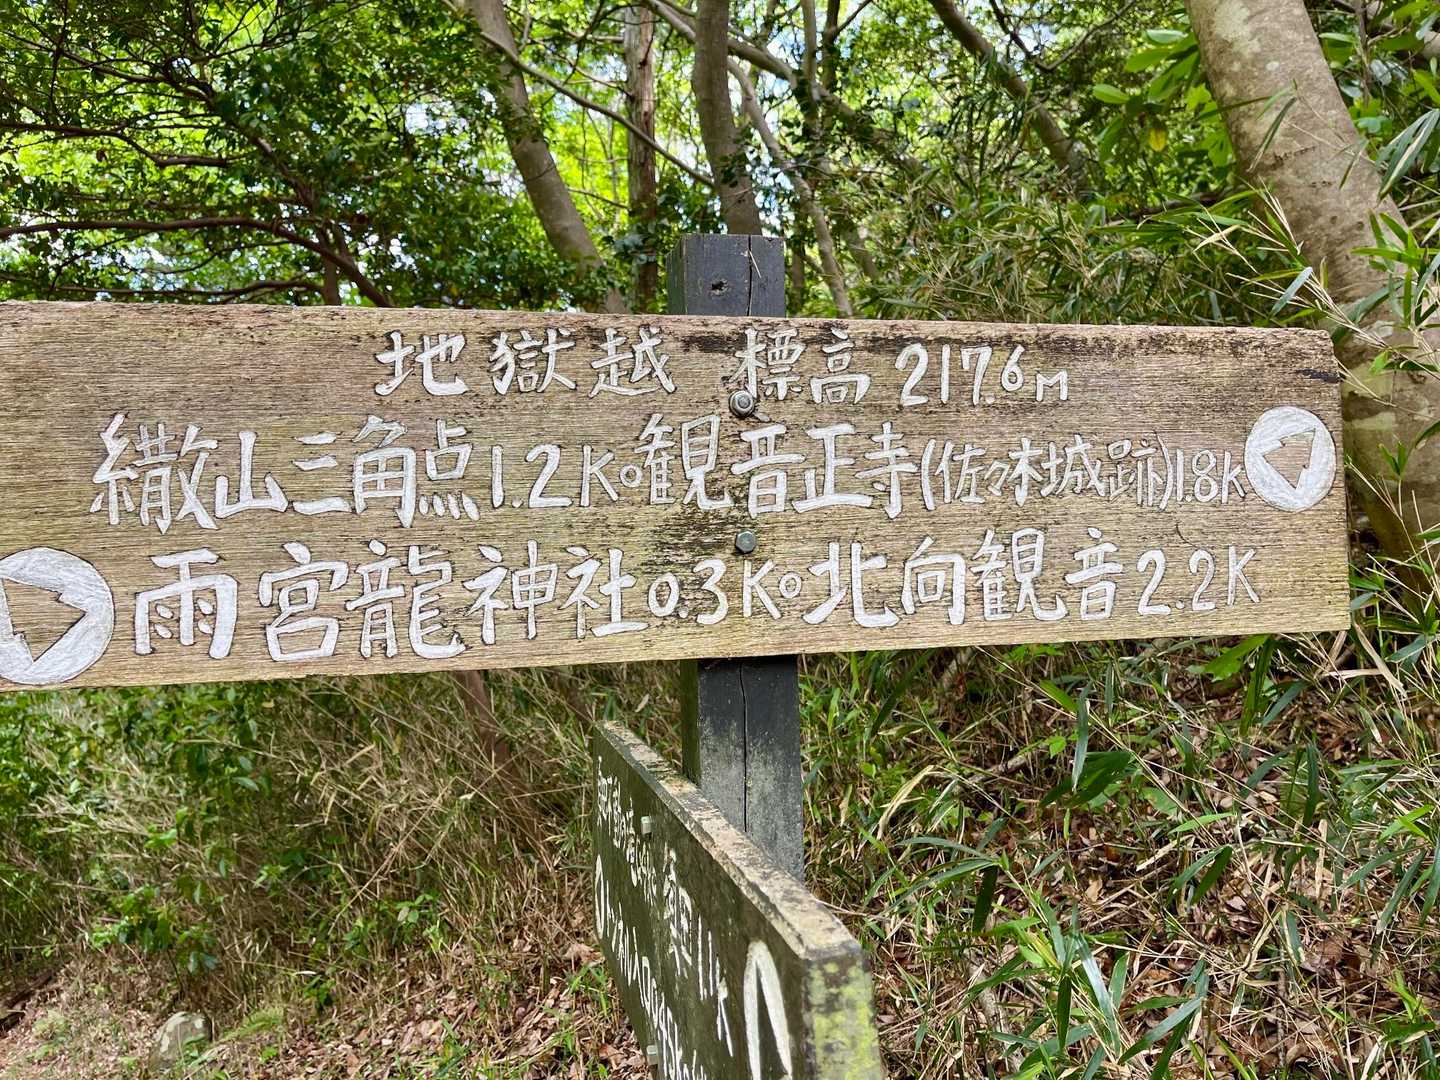 地獄越 標高217.6m
繖山三角点1.2K。観音正寺(佐々木城跡)1.8K
雨宮龍神社0.3K。北向観音2.2K